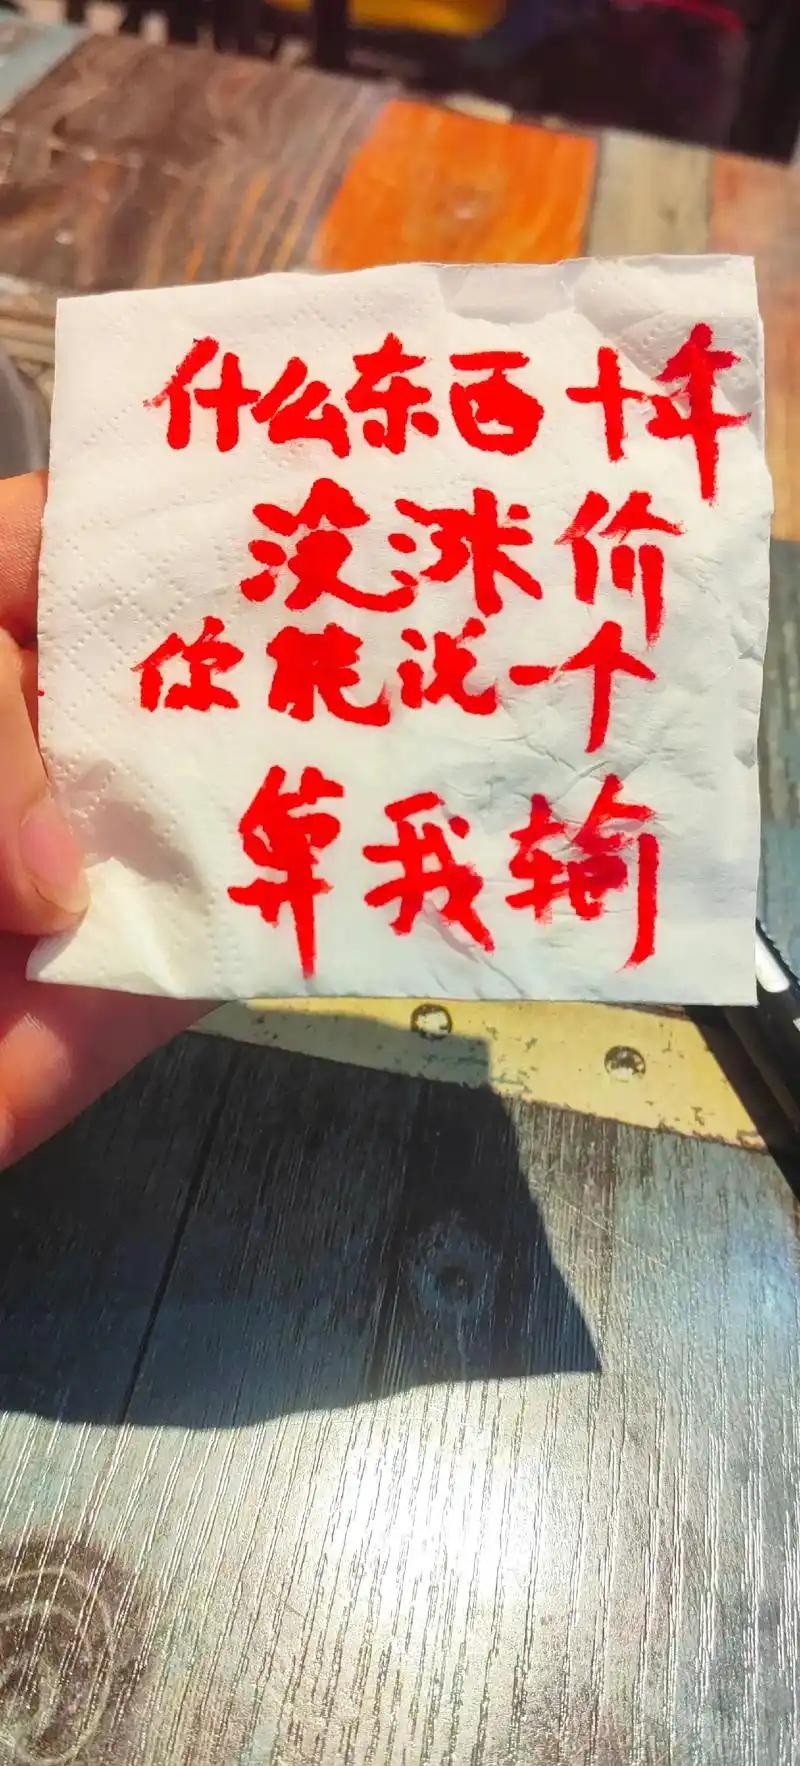 什么东西十年
没涨价
你能说一个
算我输